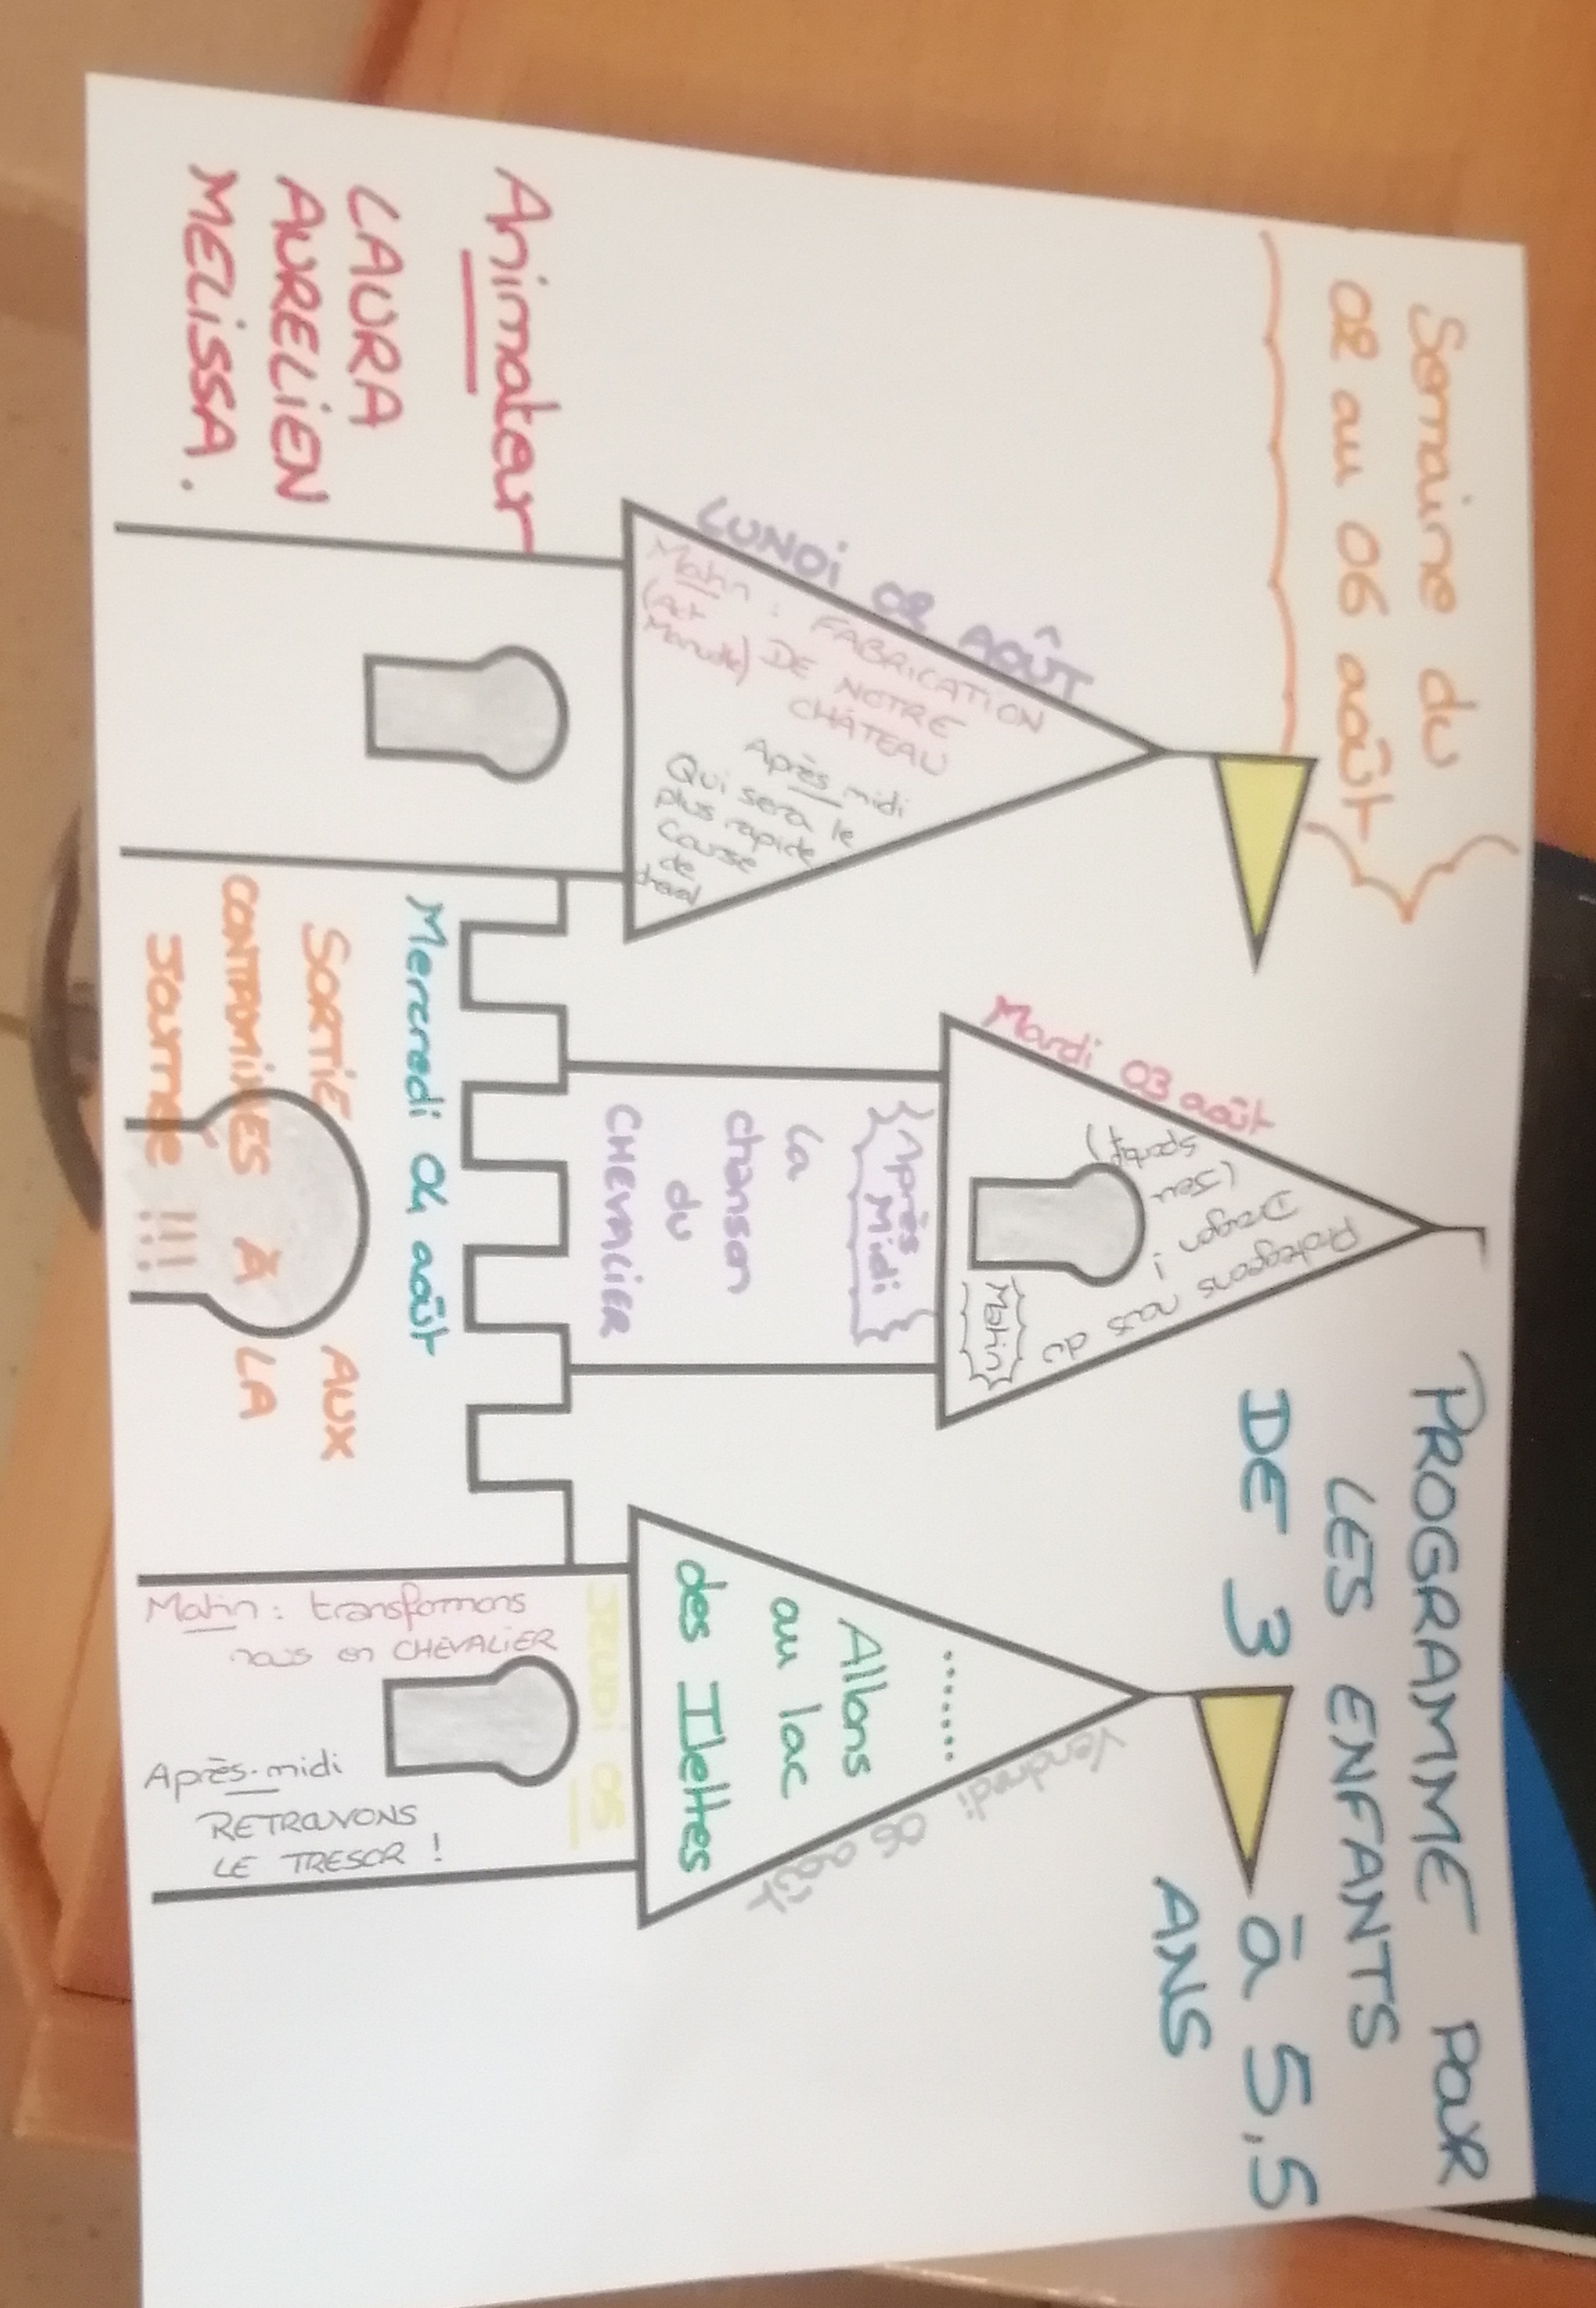 Semaine du
02 au 06 août
PROGRAMME POUR
LES ENFANTS
DE 3 à 5,5
ANS
Animateur
LAURA
AURELIEN
MELISSA.
LUNDI 02 AOÛT
Matin : FABRICATION
(Act Manuelle) DE NOTRE
CHÂTEAU
Après midi
Qui sera le
plus rapide
Course
de
cheval
Mardi 03 août
Matin
Protegeons nous du
Dragon !
(Jeu
sportif)
Après
Midi
la
chanson
du
CHEVALIER
Mercredi 04 août
SORTIE AUX
CONTAMINES À LA
JOURNEE !!!
JEUDI 05
Matin : transformons
nous en CHEVALIER
Après-midi
RETROUVONS
LE TRESOR !
Vendredi 06 août
.......
Allons
au lac
des Ilettes